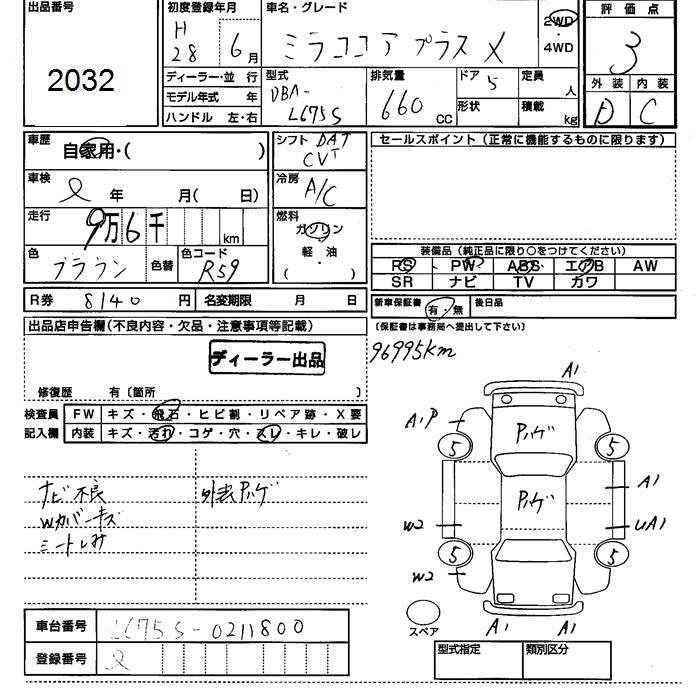 出品番号
2032
初度登録年月
H
28 6月
車名・グレード
ミラココア プラス X
2WD
・
4WD
評価点
3
外装 内装
D C
ディーラー・並 行
モデル年式 年
ハンドル 左・右
型式
DBA-
L675S
排気量
660 CC
ドア 5
形状
定員 人
積載 kg
車歴
自家用・( )
車検
年 月( 日)
走行
9万6千 km
色
ブラウン
色替
色コード
R59
シフト DAT
CVT
冷房
A/C
燃料
ガソリン
軽・油
( ・ )
セールスポイント (正常に機能するものに限ります)
装備品 (純正品に限り○をつけてください)
PS PW ABS エアB AW
SR ナビ TV カワ
R券 8140 円 名変期限 月 日
新車保証書 有・無 後日品
(保証書は事務局へ提出して下さい)
96995km
出品店申告欄(不良内容・欠品・注意事項等記載)
ディーラー出品
修復歴 有〔箇所 〕
検査員 FW キズ・飛石・ヒビ割・リペア跡・X要
記入欄 内装 キズ・汚れ・コゲ・穴・スレ・キレ・破レ
ナビ不良 外装Pハゲ
Wカバーキズ
シートしみ
A1
A1P
Pハゲ
5 5
Pハゲ
A1
W2 UA1
5 5
W2
スペア
A1 A1
車台番号 L675S-0211800
登録番号
型式指定 類別区分